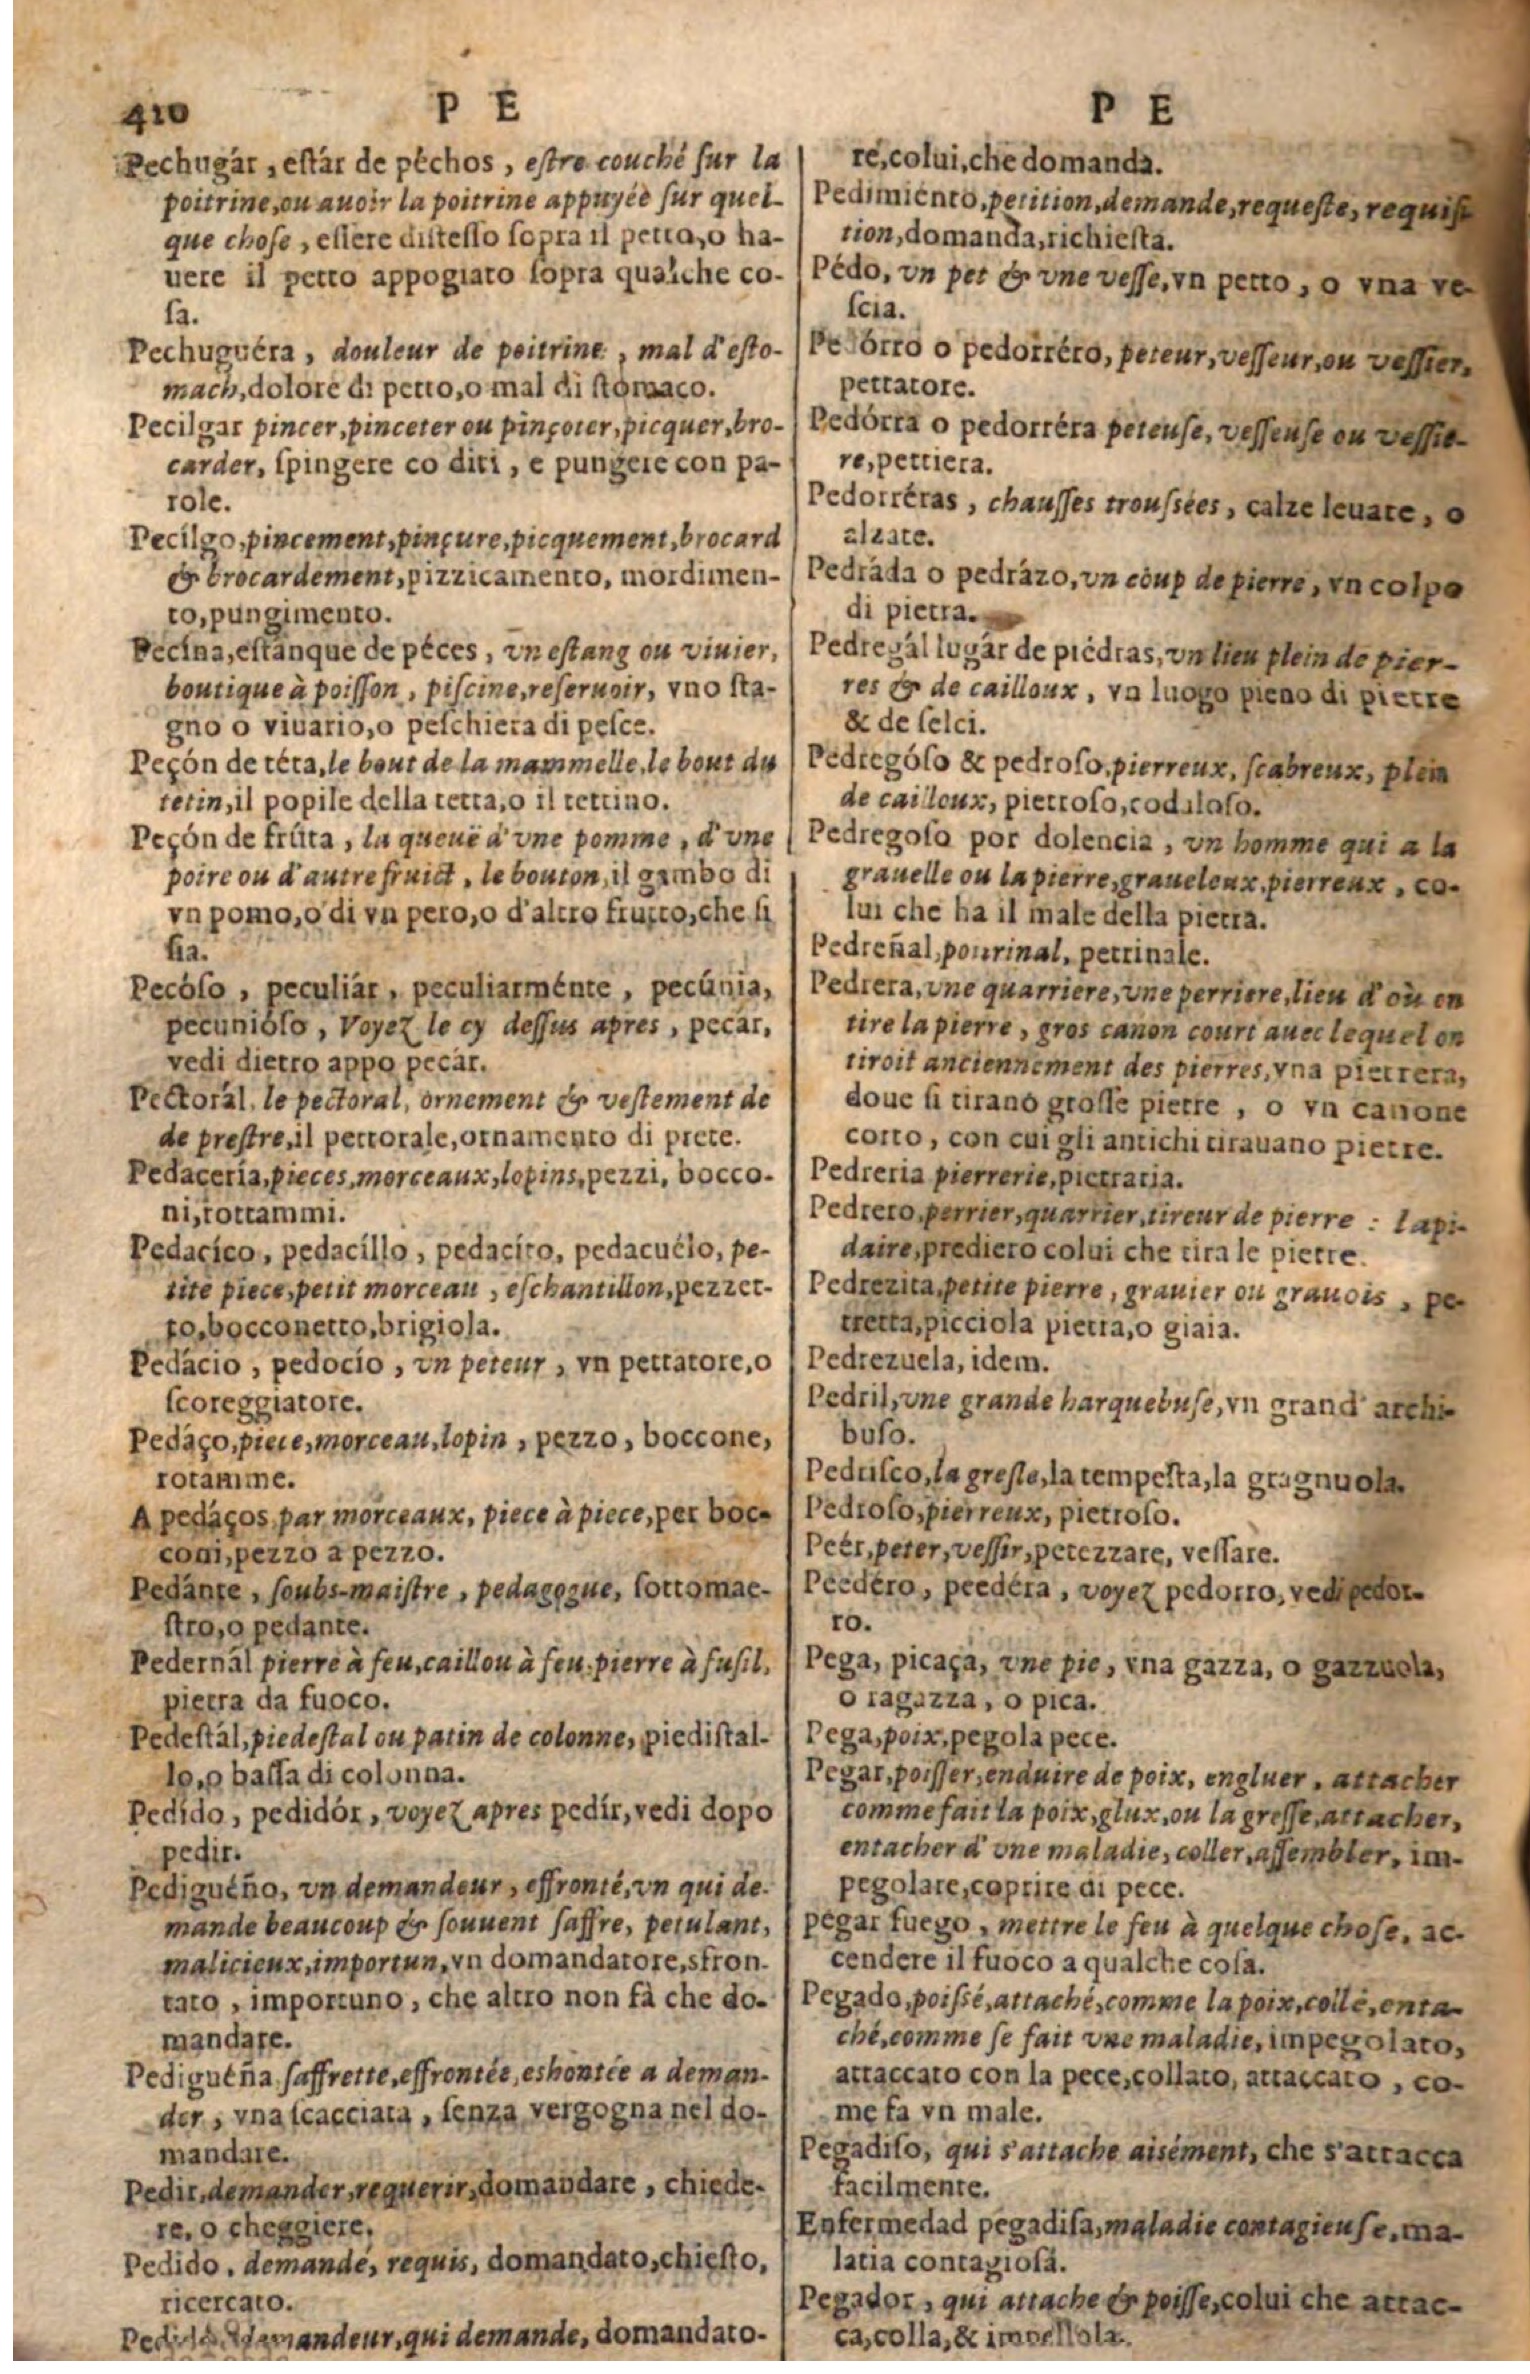 410
P E
Pechugár , eſtár de péchos , eſtre couché ſur la
poitrine,ou auoir la poitrine appuyée ſur quel-
que choſe , eſſere disteſſo ſopra il petto,o ha-
uere il petto appogiato ſopra qualche co-
ſa.
Pechuguéra , douleur de poitrine , mal d'eſto-
mach,dolore di petto,o mal di ſtomaco.
Pecilgar pincer,pinceter ou pinçoter,picquer,bro-
carder, ſpingere co diti , e pungere con pa-
role.
Pecílgo,pincement,pinçure,picquement,brocard
& brocardement,pizzicamento, mordimen-
to,pungimento.
Pecína,eſtánque de péces , vn eſtang ou viuier,
boutique à poiſſon , piſcine,reſeruoir, vno ſta-
gno o viuario,o peſchiera di peſce.
Peçón de téta,le bout de la mammelle,le bout du
tetin,il popile della tetta,o il tettino.
Peçón de frúta , la queuë d'vne pomme , d'vne
poire ou d'autre fruict , le bouton,il gambo di
vn pomo,o di vn pero,o d'altro frutto,che ſi
ſia.
Pecóſo , peculiár , peculiarménte , pecúnia,
pecunióſo , Voyez le cy deſſus apres , pecár,
vedi dietro appo pecár.
Pectorál, le pectoral, ornement & veſtement de
de preſtre,il pettorale,ornamento di prete.
Pedacería,pieces,morceaux,lopins,pezzi, bocco-
ni,rottammi.
Pedacíco , pedacíllo , pedacíto, pedacuélo, pe-
tite piece,petit morceau , eſchantillon,pezzet-
to,bocconetto,brigiola.
Pedácio , pedocío , vn peteur , vn pettatore,o
ſcoreggiatore.
Pedáço,piece,morceau,lopin , pezzo , boccone,
rotamme.
A pedáços par morceaux, piece à piece,per boc-
coni,pezzo a pezzo.
Pedánte , ſoubs-maiſtre , pedagogue, ſottomae-
ſtro,o pedante.
Pedernál pierre à feu,caillou à feu,pierre à fuſil,
pietra da fuoco.
Pedeſtál,piedeſtal ou patin de colonne, piediſtal-
lo,o baſſa di colonna.
Pedído , pedidór , voyez apres pedír,vedi dopo
pedir.
Pediguéño, vn demandeur , effronté,vn qui de-
mande beaucoup & ſouuent ſaffre, petulant,
malicieux,importun,vn domandatore,sfron-
tato , importuno , che altro non fà che do-
mandare.
Pediguéña ſaffrette,effrontée,eshontée a deman-
der , vna ſcacciata , ſenza vergogna nel do-
mandare.
Pedir,demander,requerir,domandare , chiede-
re, o cheggiere.
Pedido , demandé, requis, domandato,chieſto,
ricercato.
demandeur,qui demande, domandato-
P E
re,colui,che domanda.
Pedimiénto,petition,demande,requeſte, requiſi-
tion,domanda,richieſta.
Pédo, vn pet & vne veſſe,vn petto , o vna ve-
ſcia.
Pedórro o pedorréro, peteur,veſſeur,ou veſſier,
pettatore.
Pedórra o pedorréra peteuſe, veſſeuſe ou veſſie-
re,pettiera.
Pedorréras , chauſſes trouſsées , calze leuate , o
alzate.
Pedráda o pedrázo,vn coup de pierre , vn colpo
di pietra.
Pedregál lugár de piédras,vn lieu plein de pier-
res & de cailloux , vn luogo pieno di pietre
& de ſelci.
Pedregóſo & pedroſo,pierreux, ſcabreux, plein
de cailloux, pietroſo,codoloſo.
Pedregoſo por dolencia , vn homme qui a la
grauelle ou la pierre,graueleux,pierreux , co-
lui che ha il male della pietra.
Pedreñal,pourinal, petrinale.
Pedrera,vne quarriere,vne perriere,lieu d'où en
tire la pierre , gros canon court auec lequel on
tiroit anciennement des pierres,vna pietrera,
doue ſi tirano groſſe pietre , o vn canone
corto , con cui gli antichi tirauano pietre.
Pedreria pierrerie,pietraria.
Pedrero,perrier,quarrier,tireur de pierre : lapi-
daire,prediero colui che tira le pietre.
Pedrezita,petite pierre , grauier ou grauois , pe-
tretta,picciola pietra,o giaia.
Pedrezuela, idem.
Pedril,vne grande harquebuſe,vn grand' archi-
buſo.
Pedriſco,la greſle,la tempeſta,la gragnuola.
Pedroſo,pierreux, pietroſo.
Peér,peter,veſſir,petezzare, veſſare.
Peedéro , peedéra , voyez pedorro, vedi pedor-
ro.
Pega, picaça, vne pie , vna gazza, o gazzuola,
o ragazza , o pica.
Pega,poix,pegola pece.
Pegar,poiſſer,enduire de poix, engluer , attacher
comme fait la poix,glux,ou la greſſe,attacher,
entacher d'vne maladie, coller,aſſembler, im-
pegolare,coprire di pece.
pegar fuego , mettre le feu à quelque choſe, ac-
cendere il fuoco a qualche coſa.
Pegado,poiſsé,attaché,comme la poix,collé,enta-
ché,comme ſe fait vne maladie, impegolato,
attaccato con la pece,collato, attaccato , co-
me fa vn male.
Pegadiſo, qui s'attache aisément, che s'attacca
facilmente.
Enfermedad pegadiſa,maladie contagieuſe,ma-
latia contagioſa.
Pegador , qui attache & poiſſe,colui che attac-
ca,colla,&